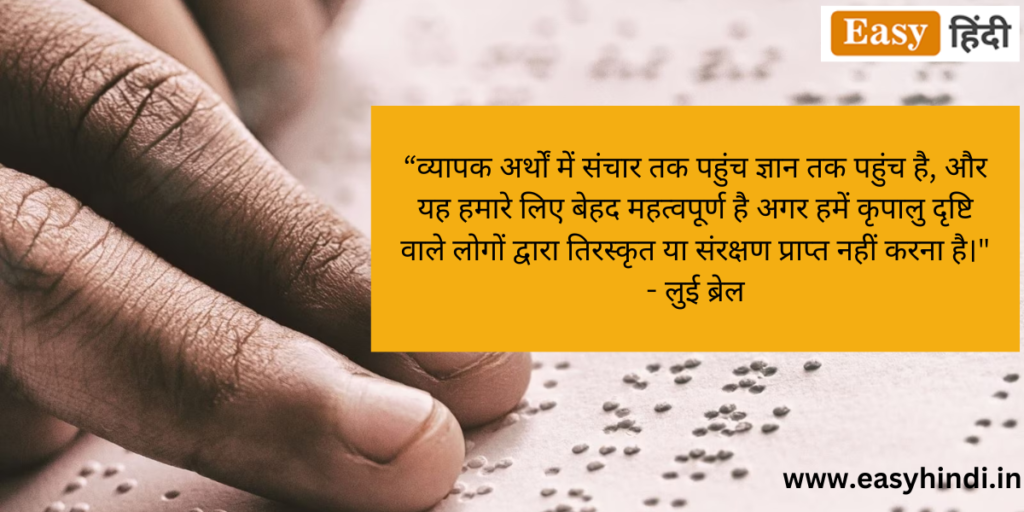 Easy हिंदी
“व्यापक अर्थों में संचार तक पहुंच ज्ञान तक पहुंच है, और
यह हमारे लिए बेहद महत्वपूर्ण है अगर हमें कृपालु दृष्टि
वाले लोगों द्वारा तिरस्कृत या संरक्षण प्राप्त नहीं करना है।"
- लुई ब्रेल
www.easyhindi.in